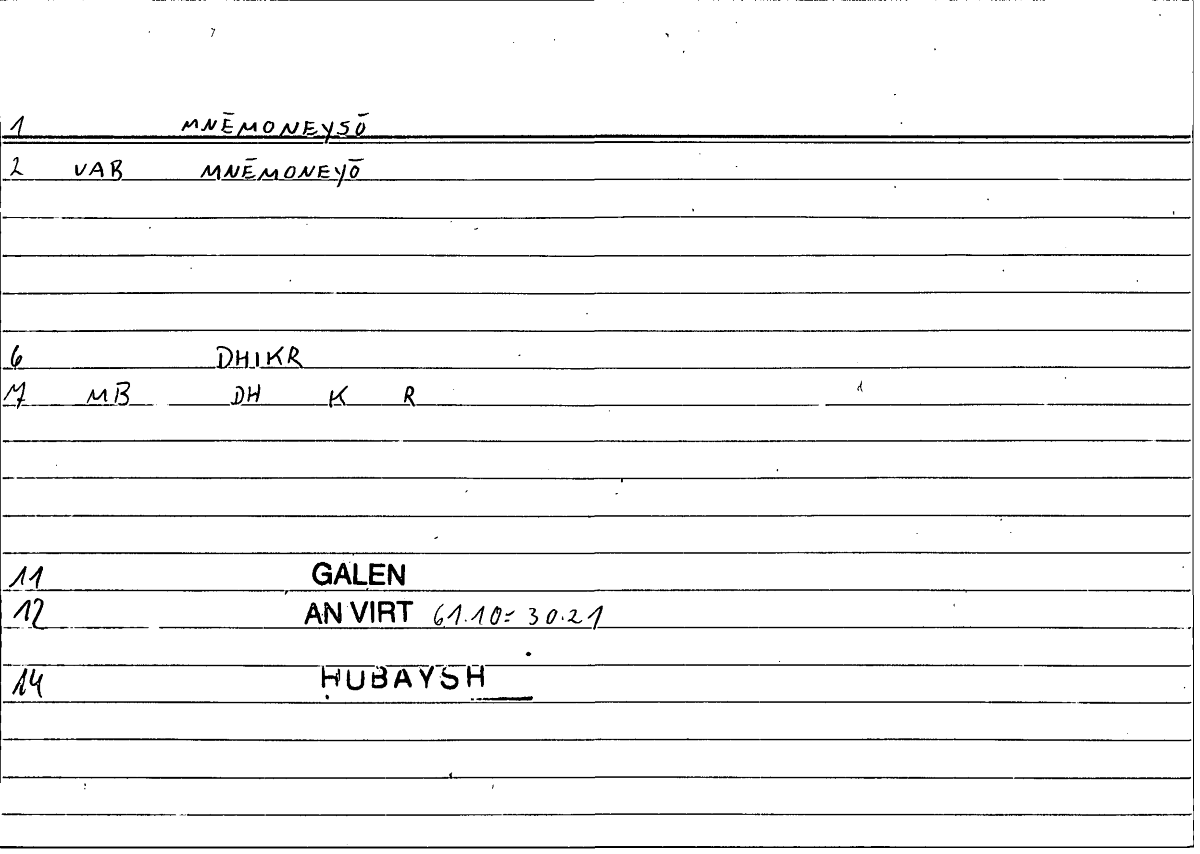 1 MNĒMONEYSŌ
2 VAB MNĒMONEYŌ
6 DHIKR
7 MB DH K R
11 GALEN
12 AN VIRT 61.10= 30.21
14 ḤUBAYSH